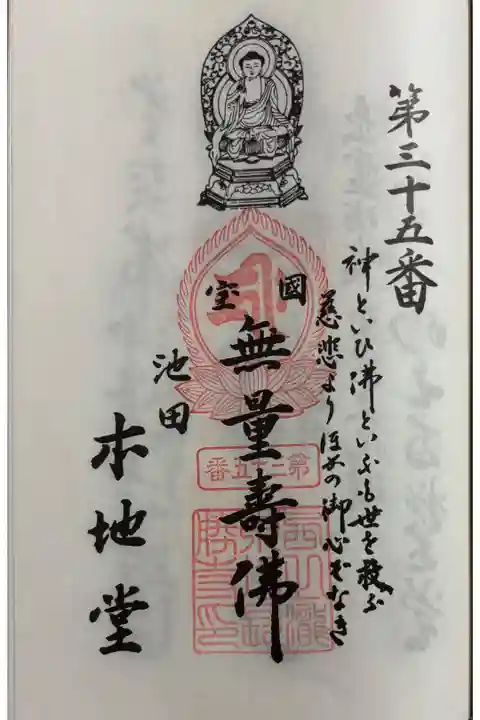 第三十五番
神といひ佛といふも世を救ふ
慈悲よりほかの御心ぞなき
國
宝
無量壽佛
池田
本地堂
第三十五番